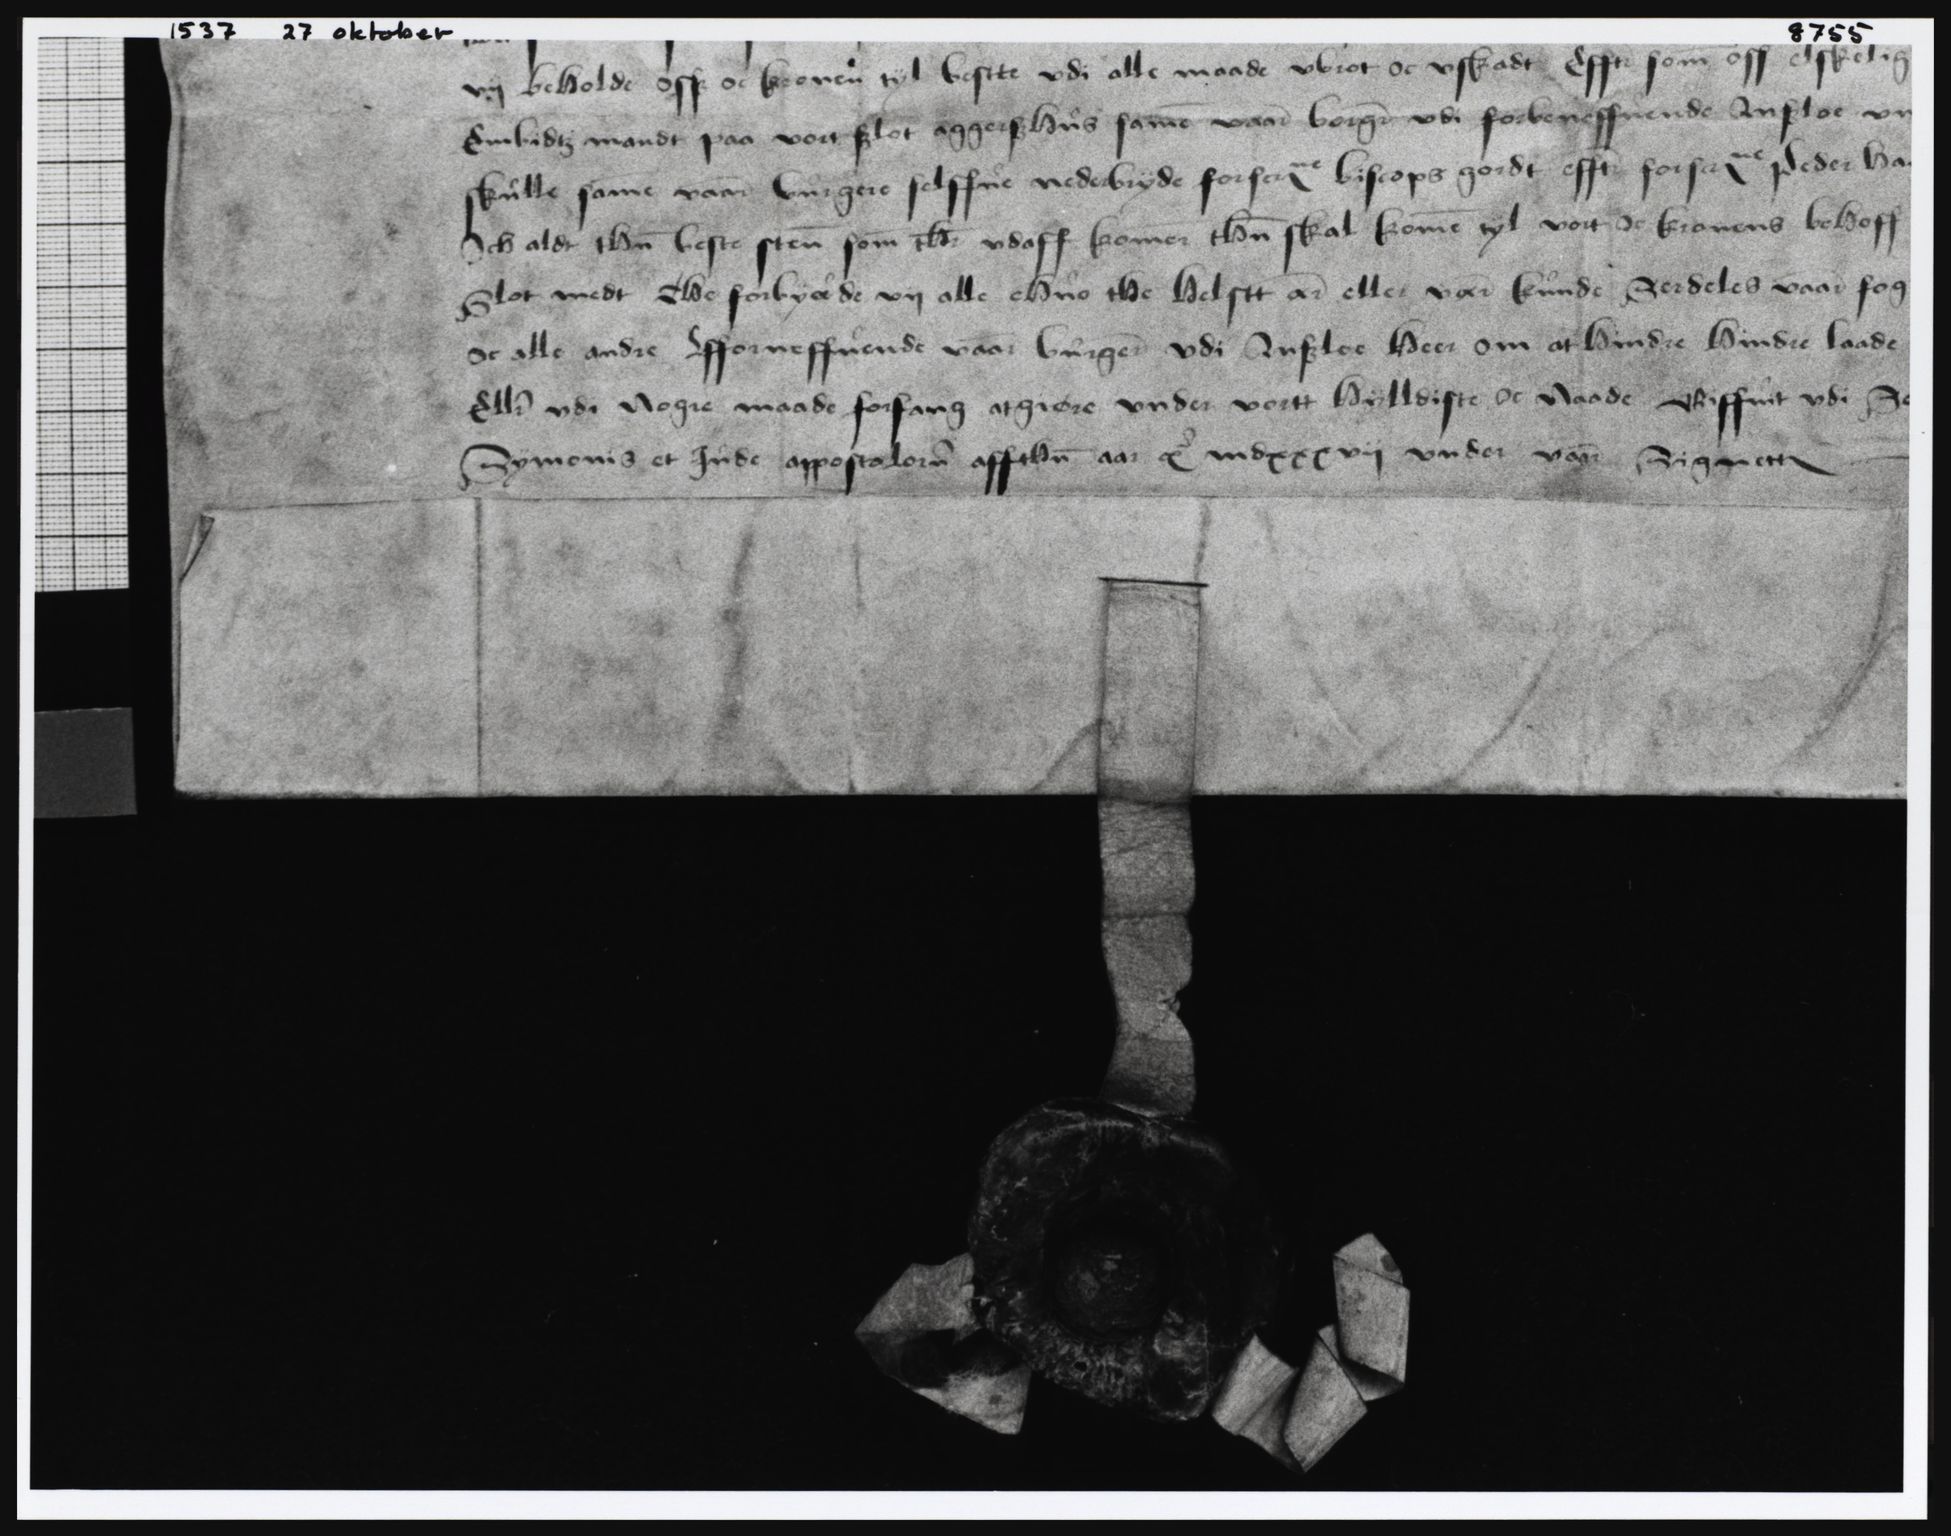 1537 27 oktober 8755
vij beholde oss oc kronen tijl bestte vdi alle maade vbrot oc vskadt Efftr som oss elskelig
Embidtz mandt paa vort slot aggerszhus same vaar borger vdi forbeneffnende Anszloe vn
skulle same vaar burgere selffue nederbryde forscrne biscops gordt efftr forscrne peder ha
Och aldt thn beste sten som thr vdaff komer thn skal kome tyl vort oc kronens behoff
Slot medt The forbyude vij alle ehuo the helstt ær eller vær kunde Serdeles vaar fog
oc alle andre fforneffnende vaar burger vdi Anszloe heer om at hindre hindre laade
Ellr vdi Nogre maade forfang at giøre vnder vortt hylldiste oc Naade Giffuit vdi
Symonis et Jude appostolorum affthn aar mdxxxvij vnder vaar Signett